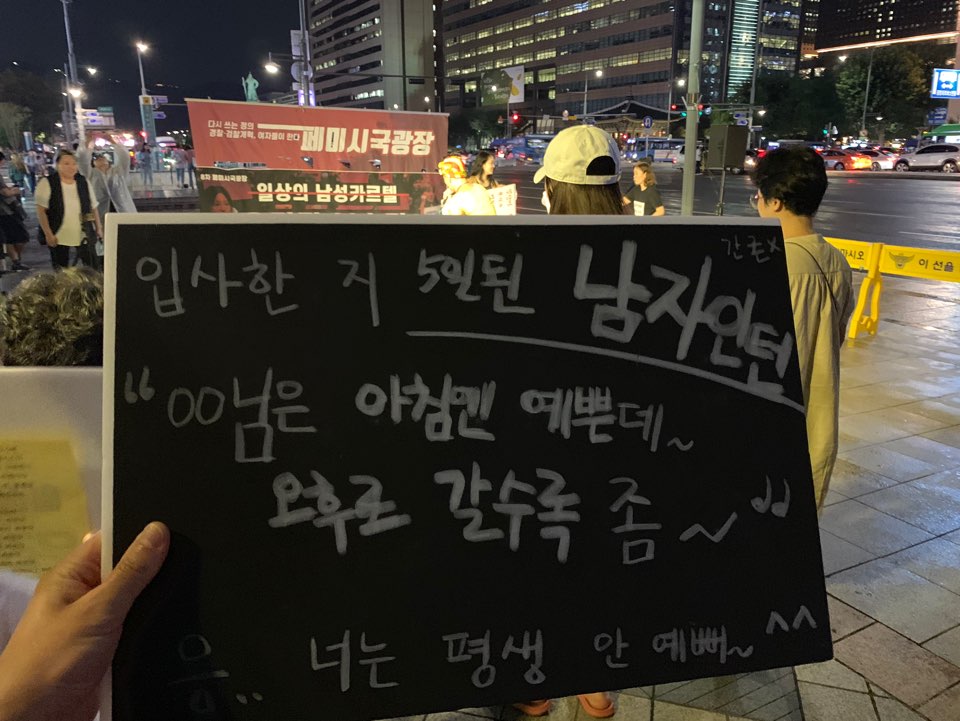 다시 쓰는 정의
경찰·검찰개혁, 여자들이 한다
페미시국광장
8차 페미시국광장
일상의 남성카르텔
마시오
이 선을
입사한 지 5일된 남자인턴
"00님은 아침엔 예쁜데~
오후로 갈수록 좀~"
응.. 너는 평생 안 예뻐~ ^^